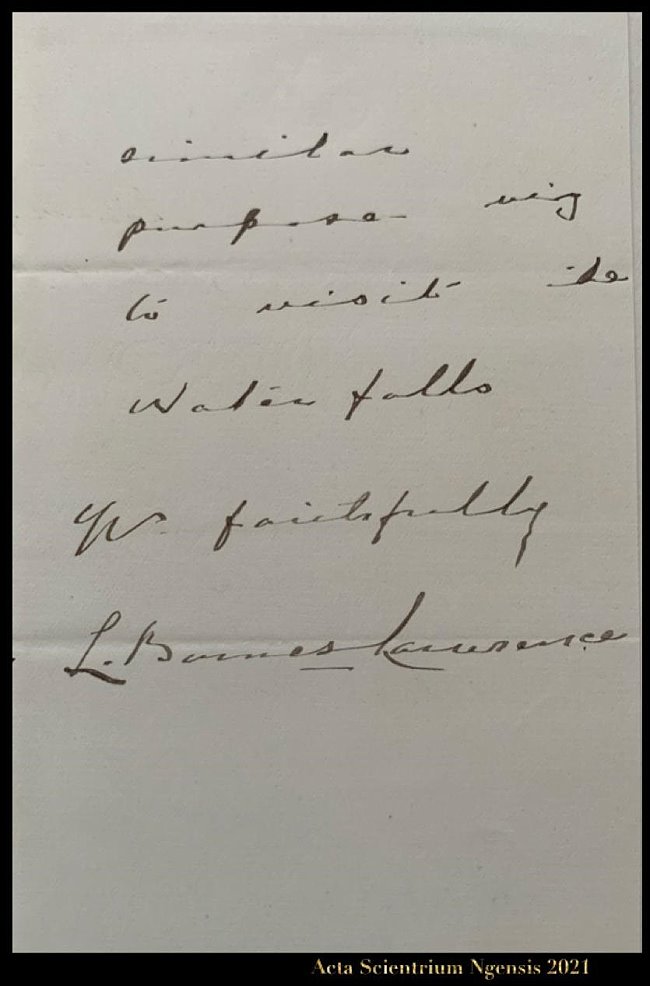 similar
purpose viz
to visit the
Water falls
Yrs. faithfully
L. Barnes Lawrence
Acta Scientrium Ngensis 2021